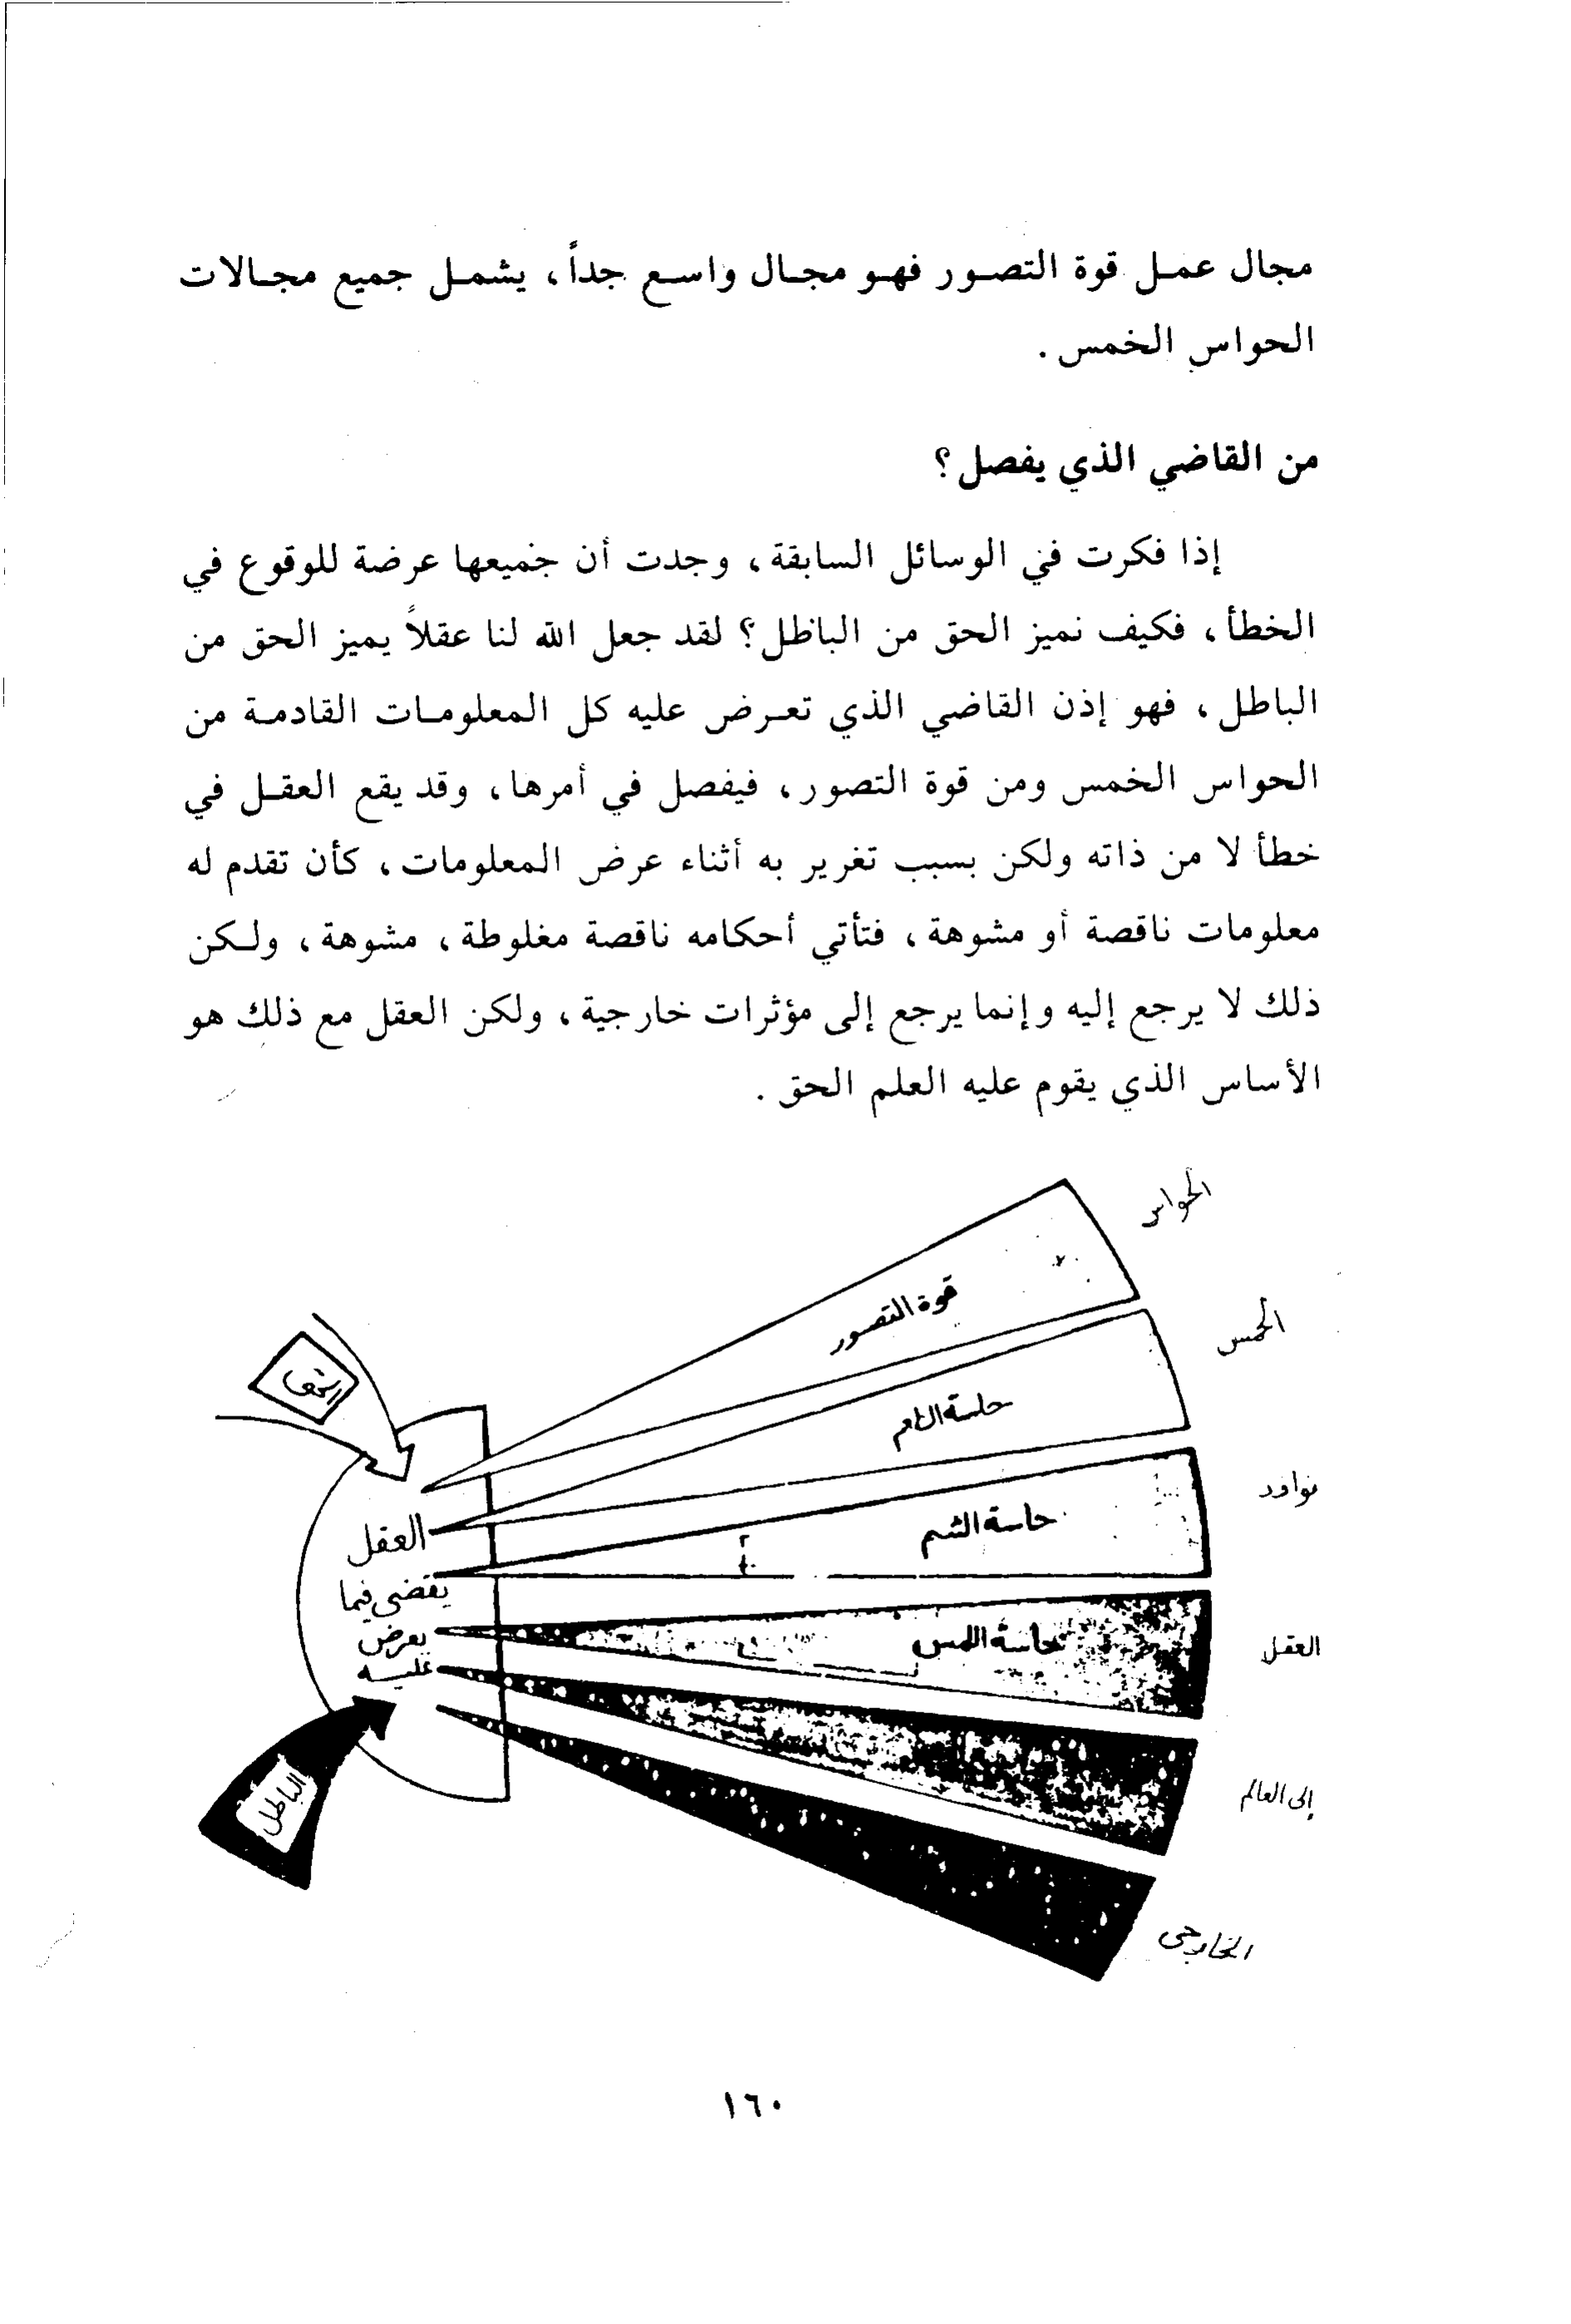 مجال عمل قوة التصور فهو مجال واسع جداً، يشمل جميع مجالات
الحواس الخمس.
من القاضي الذي يفصل؟
إذا فكرت في الوسائل السابقة، وجدت أن جميعها عرضة للوقوع في
الخطأ، فكيف نميز الحق من الباطل؟ لقد جعل الله لنا عقلاً يميز الحق من
الباطل، فهو إذن القاضي الذي تعرض عليه كل المعلومات القادمة من
الحواس الخمس ومن قوة التصور، فيفصل في أمرها، وقد يقع العقل في
خطأ لا من ذاته ولكن بسبب تغرير به أثناء عرض المعلومات، كأن تقدم له
معلومات ناقصة أو مشوهة، فتأتي أحكامه ناقصة مغلوطة، مشوهة، ولكن
ذلك لا يرجع إليه وإنما يرجع إلى مؤثرات خارجية، ولكن العقل مع ذلك هو
الأساس الذي يقوم عليه العلم الحق.
الحواس
الخمس
نوافذ
العقل
إلى العالم
الخارجي
قوة التصور
حاسة الطعم
حاسة الشم
حاسة اللمس
العقل
يقضي فيما
يعرض
عليه
الباطل
١٦٠